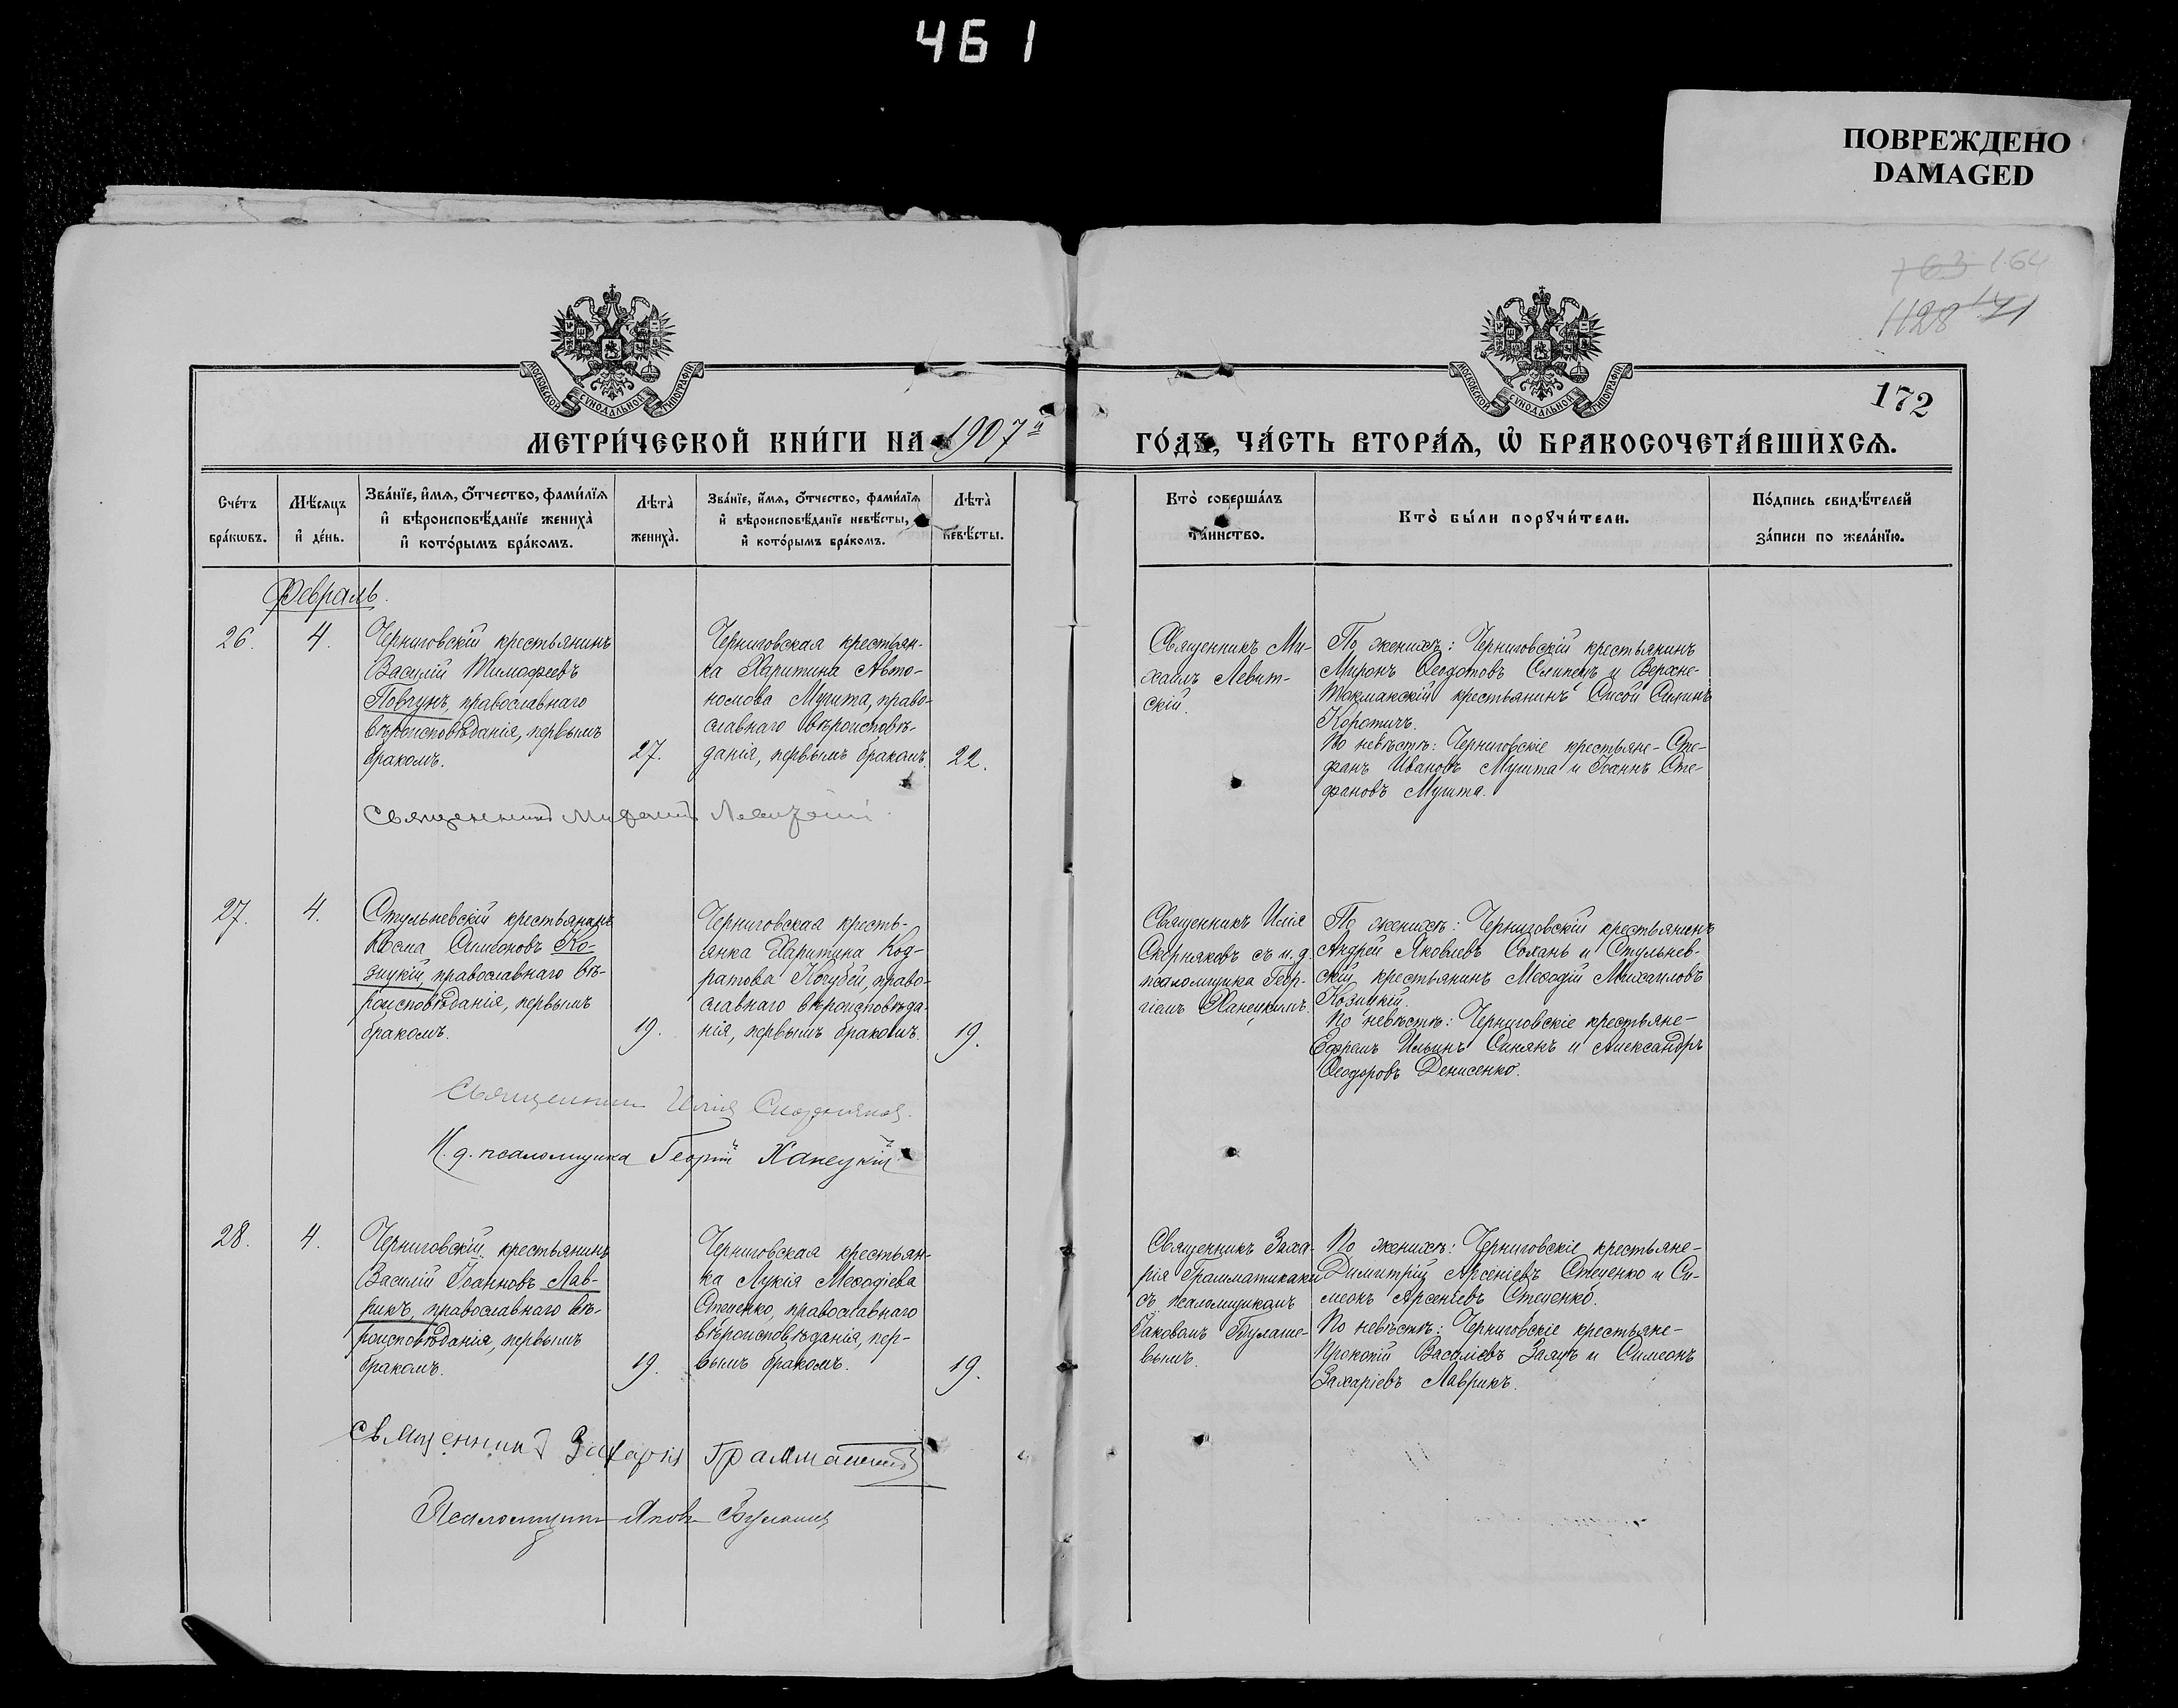 461
ПОВРЕЖДЕНО
DAMAGED
163 164
1128
172
МОСКОВСКОЙ СѴНОДАЛЬНОЙ ТИПОГРАФІИ
МОСКОВСКОЙ СѴНОДАЛЬНОЙ ТИПОГРАФІИ
МЕТРИ́ЧЕСКОЙ КНИ́ГИ НА 1907й
ГО́ДЪ, ЧА́СТЬ ВТОРА́Ѧ, Ѽ БРАКОСОЧЕТА́ВШИХСѦ.
Сче́тъ
бра́кѡвъ.
Мѣ́сяцъ
и҆ де́нь.
Зва́нїе, и҆́мѧ, ѻ҆́тчество, фами́лїѧ
и҆ вѣроисповѣ́данїе жениха̀
и҆ кото́рымъ бра́комъ.
Лѣта̀
жениха̀.
Зва́нїе, и҆́мѧ, ѻ҆́тчество, фами́лїѧ
и҆ вѣроисповѣ́данїе невѣ́сты,
и҆ кото́рымъ бра́комъ.
Лѣта̀
невѣ́сты.
Кто̀ соверша́лъ
та́инство.
Кто̀ бы́ли порꙋчи́тели.
По́дпись свидѣ́телей
за́писи по жела́нїю.
Февраль.
26.
4.
Черниговскій крестьянинъ
Василій Тимофеевъ
Повчунъ, православнаго
вѣроисповѣданія, первымъ
бракомъ.
27.
Черниговская крестьян-
ка Харитина Авто-
номова Мушта, право-
славнаго вѣроисповѣ-
данія, первымъ бракомъ.
22.
Священникъ Ми-
хаилъ Левит-
скій.
По женихѣ: Черниговскій крестьянинъ
Миронъ Ѳеодотовъ Слипецъ и Верхне-
Токмакскій крестьянинъ Сысой Силинъ
Коротичъ.
По невѣстѣ: Черниговскіе крестьяне - Сте-
фанъ Ивановъ Мушта и Іоаннъ Сте-
фановъ Мушта.
Священникъ Михаилъ Левитскій
27.
4.
Стульневскій крестьянинъ
Косма Симеоновъ Ко-
зицкій, православнаго вѣ-
роисповѣданія, первымъ
бракомъ.
19.
Черниговская кресть-
янка Харитина Код-
ратова Кочубей, право-
славнаго вѣроисповѣда-
нія, первымъ бракомъ.
19.
Священникъ Илія
Скорняковъ съ и. д.
псаломщика Геор-
гіемъ Ханецкимъ.
По женихѣ: Черниговскій крестьянинъ
Андрей Яковлевъ Сохань и Стульнев-
скій крестьянинъ Меѳодій Михаиловъ
Козицкій.
По невѣстѣ: Черниговскіе крестьяне -
Ефремъ Ильинъ Синякъ и Александръ
Ѳеодоровъ Денисенко.
Священникъ Илія Скорняковъ.
И. д. псаломщика Георгій Ханецкій
28.
4.
Черниговскій крестьянинъ
Василій Іоанновъ Лав-
рикъ, православнаго вѣ-
роисповѣданія, первымъ
бракомъ.
19.
Черниговская крестьян-
ка Лукія Меѳодіева
Стеценко, православнаго
вѣроисповѣданія, пер-
вымъ бракомъ.
19.
Священникъ Заха-
рія Грамматикаки
съ псаломщикомъ
Іаковомъ Булаше-
вымъ.
По женихѣ: Черниговскіе крестьяне -
Димитрій Арсеніевъ Стеценко и Си-
меонъ Арсеніевъ Стеценко.
По невѣстѣ: Черниговскіе крестьяне -
Прокопій Василіевъ Заяцъ и Симеонъ
Захаріевъ Лаврикъ.
Священникъ Захарія
Псаломщикъ Яковъ Булашевъ